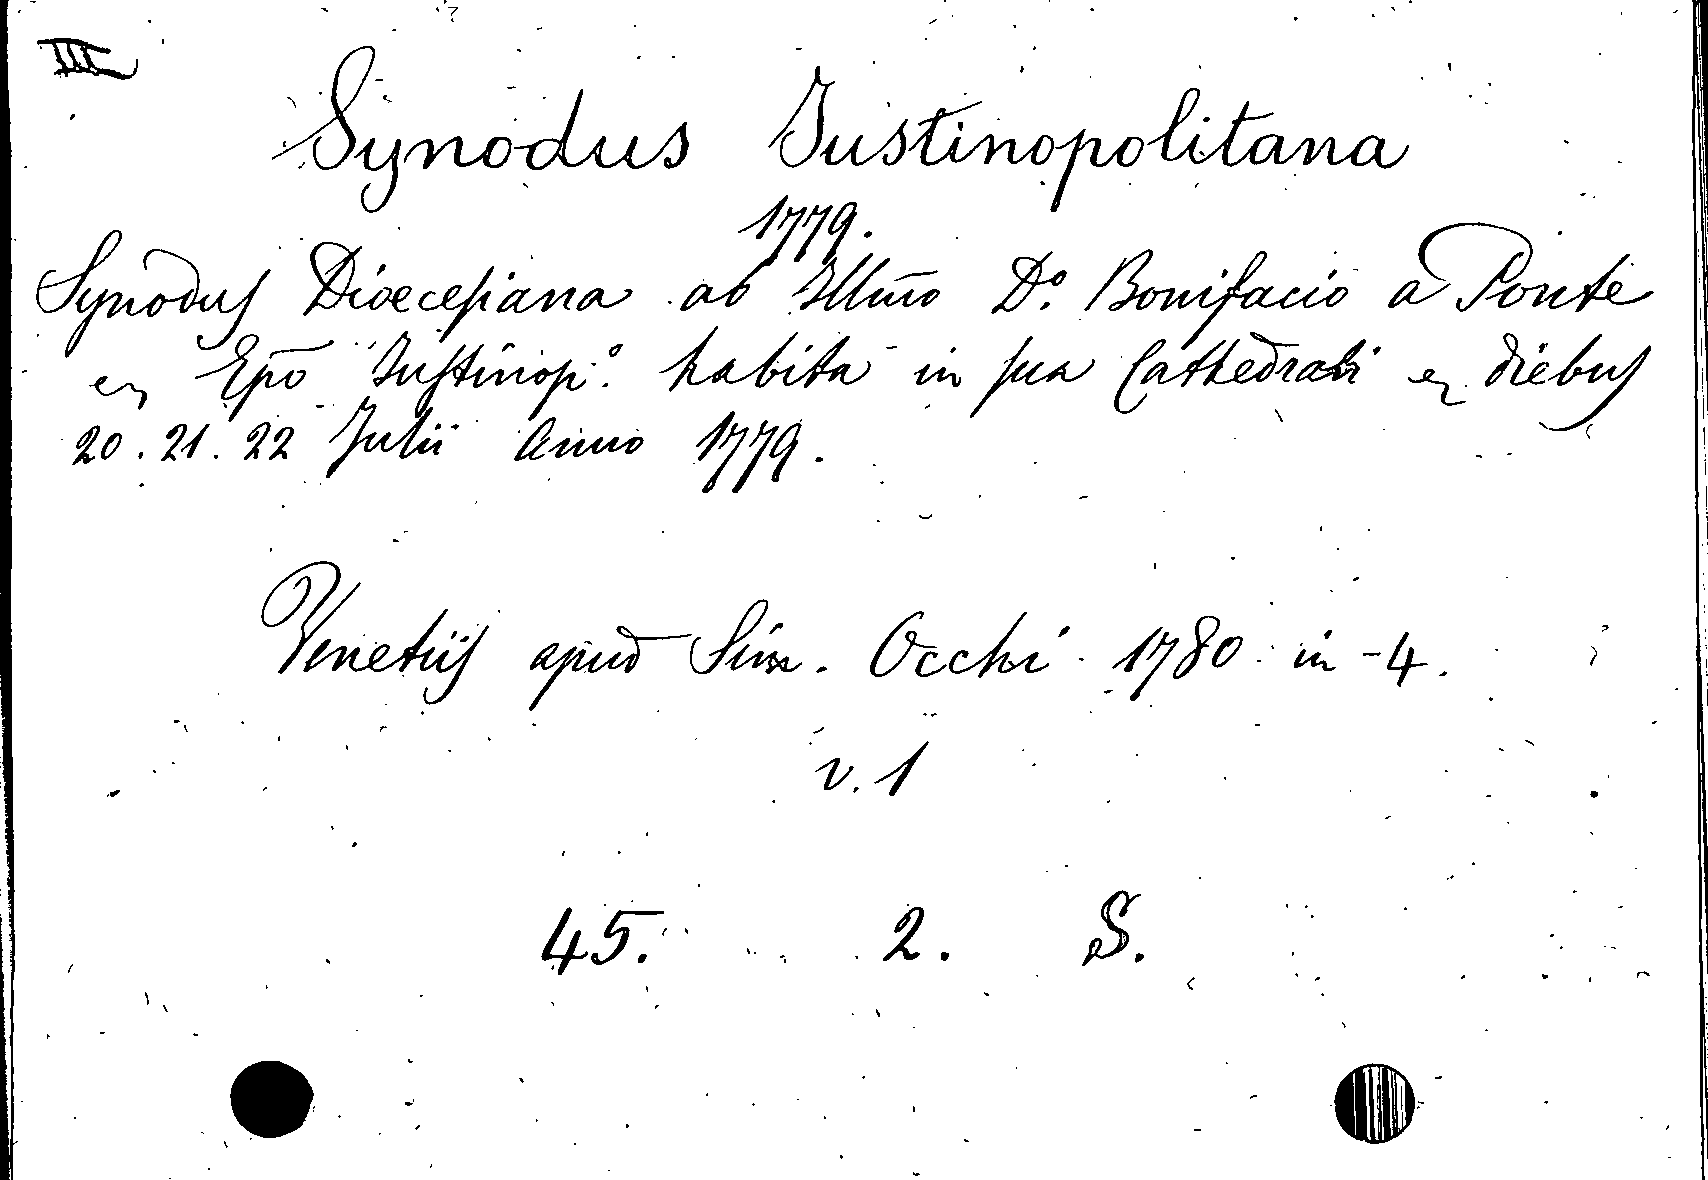 III
Synodus Justinopolitana
1779.
Synodus Dioecesiana ab Illmo Do. Bonifacio a Ponte
Epo Justinopo. habita in sua Cathedrali diebus
20. 21. 22 Julii Anno 1779.
Venetiis apud Sim. Occhi 1780 in-4.
v. 1
45. 2. S.